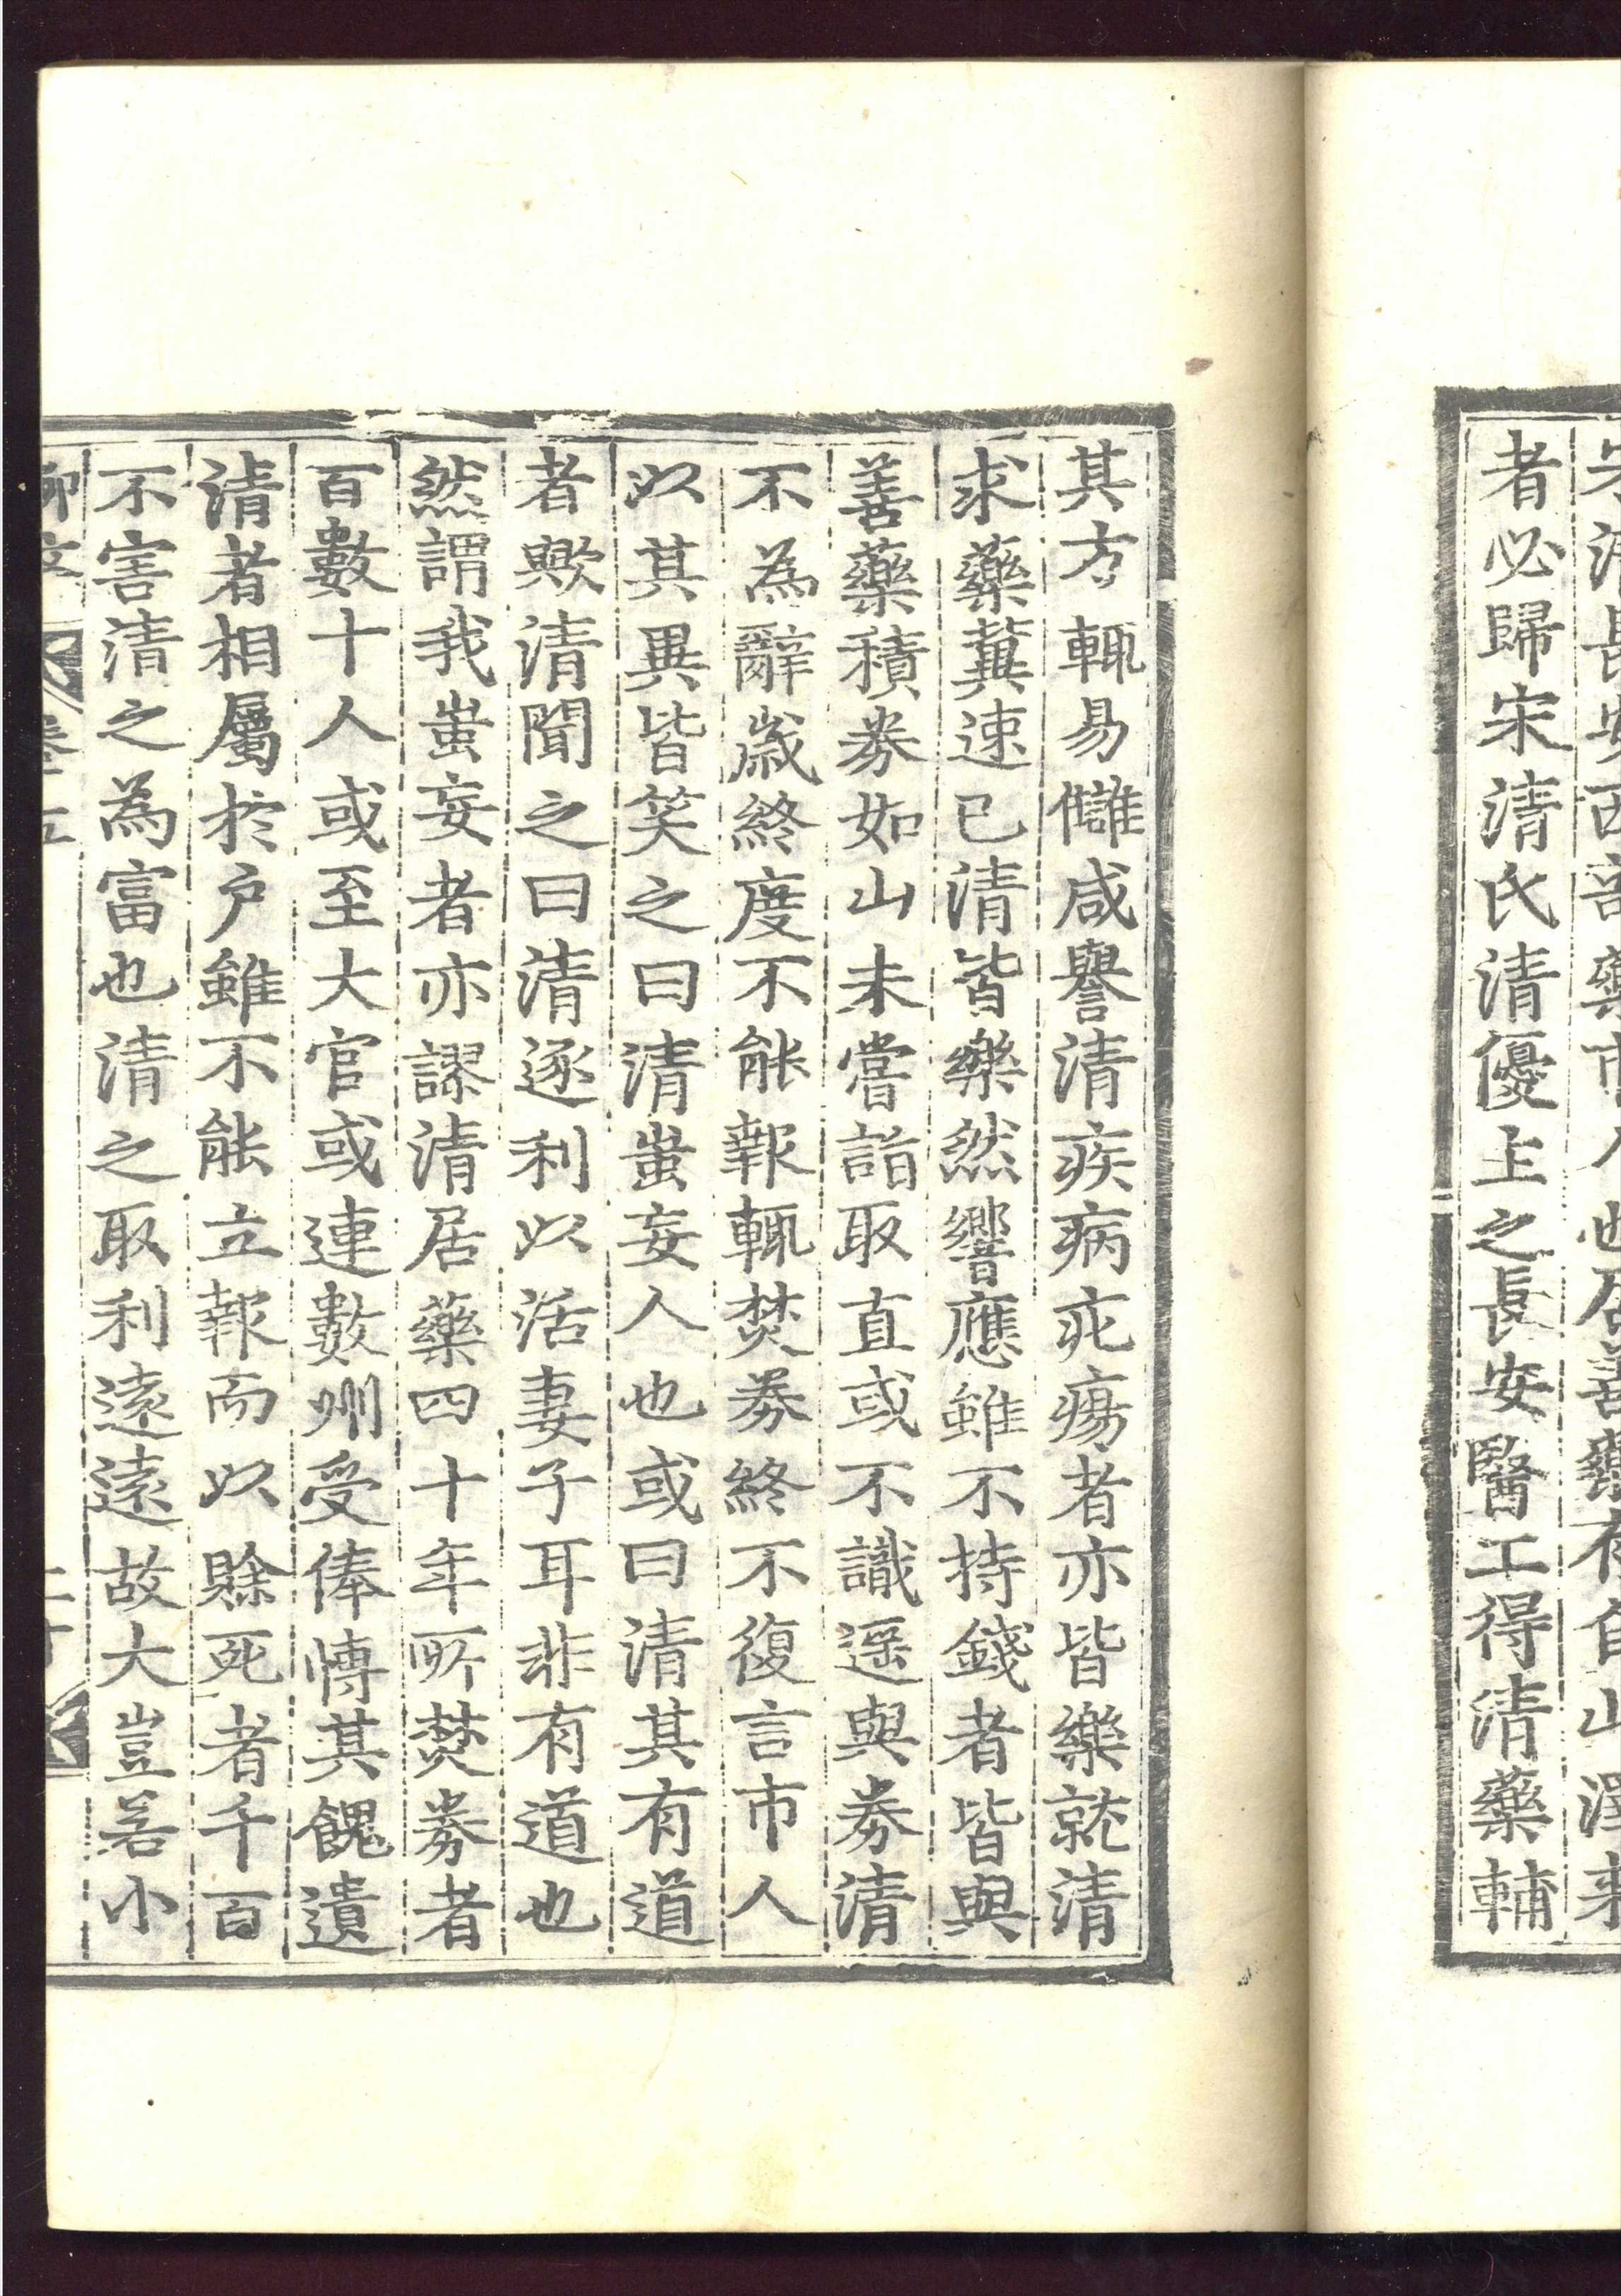 者必歸宋清氏清優上之長安醫工得清藥輔
其方輒易讎咸譽清疾病疕瘍者亦皆樂就清
求藥冀速已清皆樂然響應雖不持錢者皆與
善藥積券如山未嘗詣取直或不識遥與券清
不為辭歲終度不能報輒焚券終不復言市人
以其異皆笑之曰清蚩妄人也或曰清其有道
者歟清聞之曰清逐利以活妻子耳非有道也
然謂我蚩妄者亦謬清居藥四十年所焚券者
百數十人或至大官或連數州受俸博其餽遺
清者相屬於户雖不能立報而以賒死者千百
不害清之為富也清之取利遠遠故大豈若小